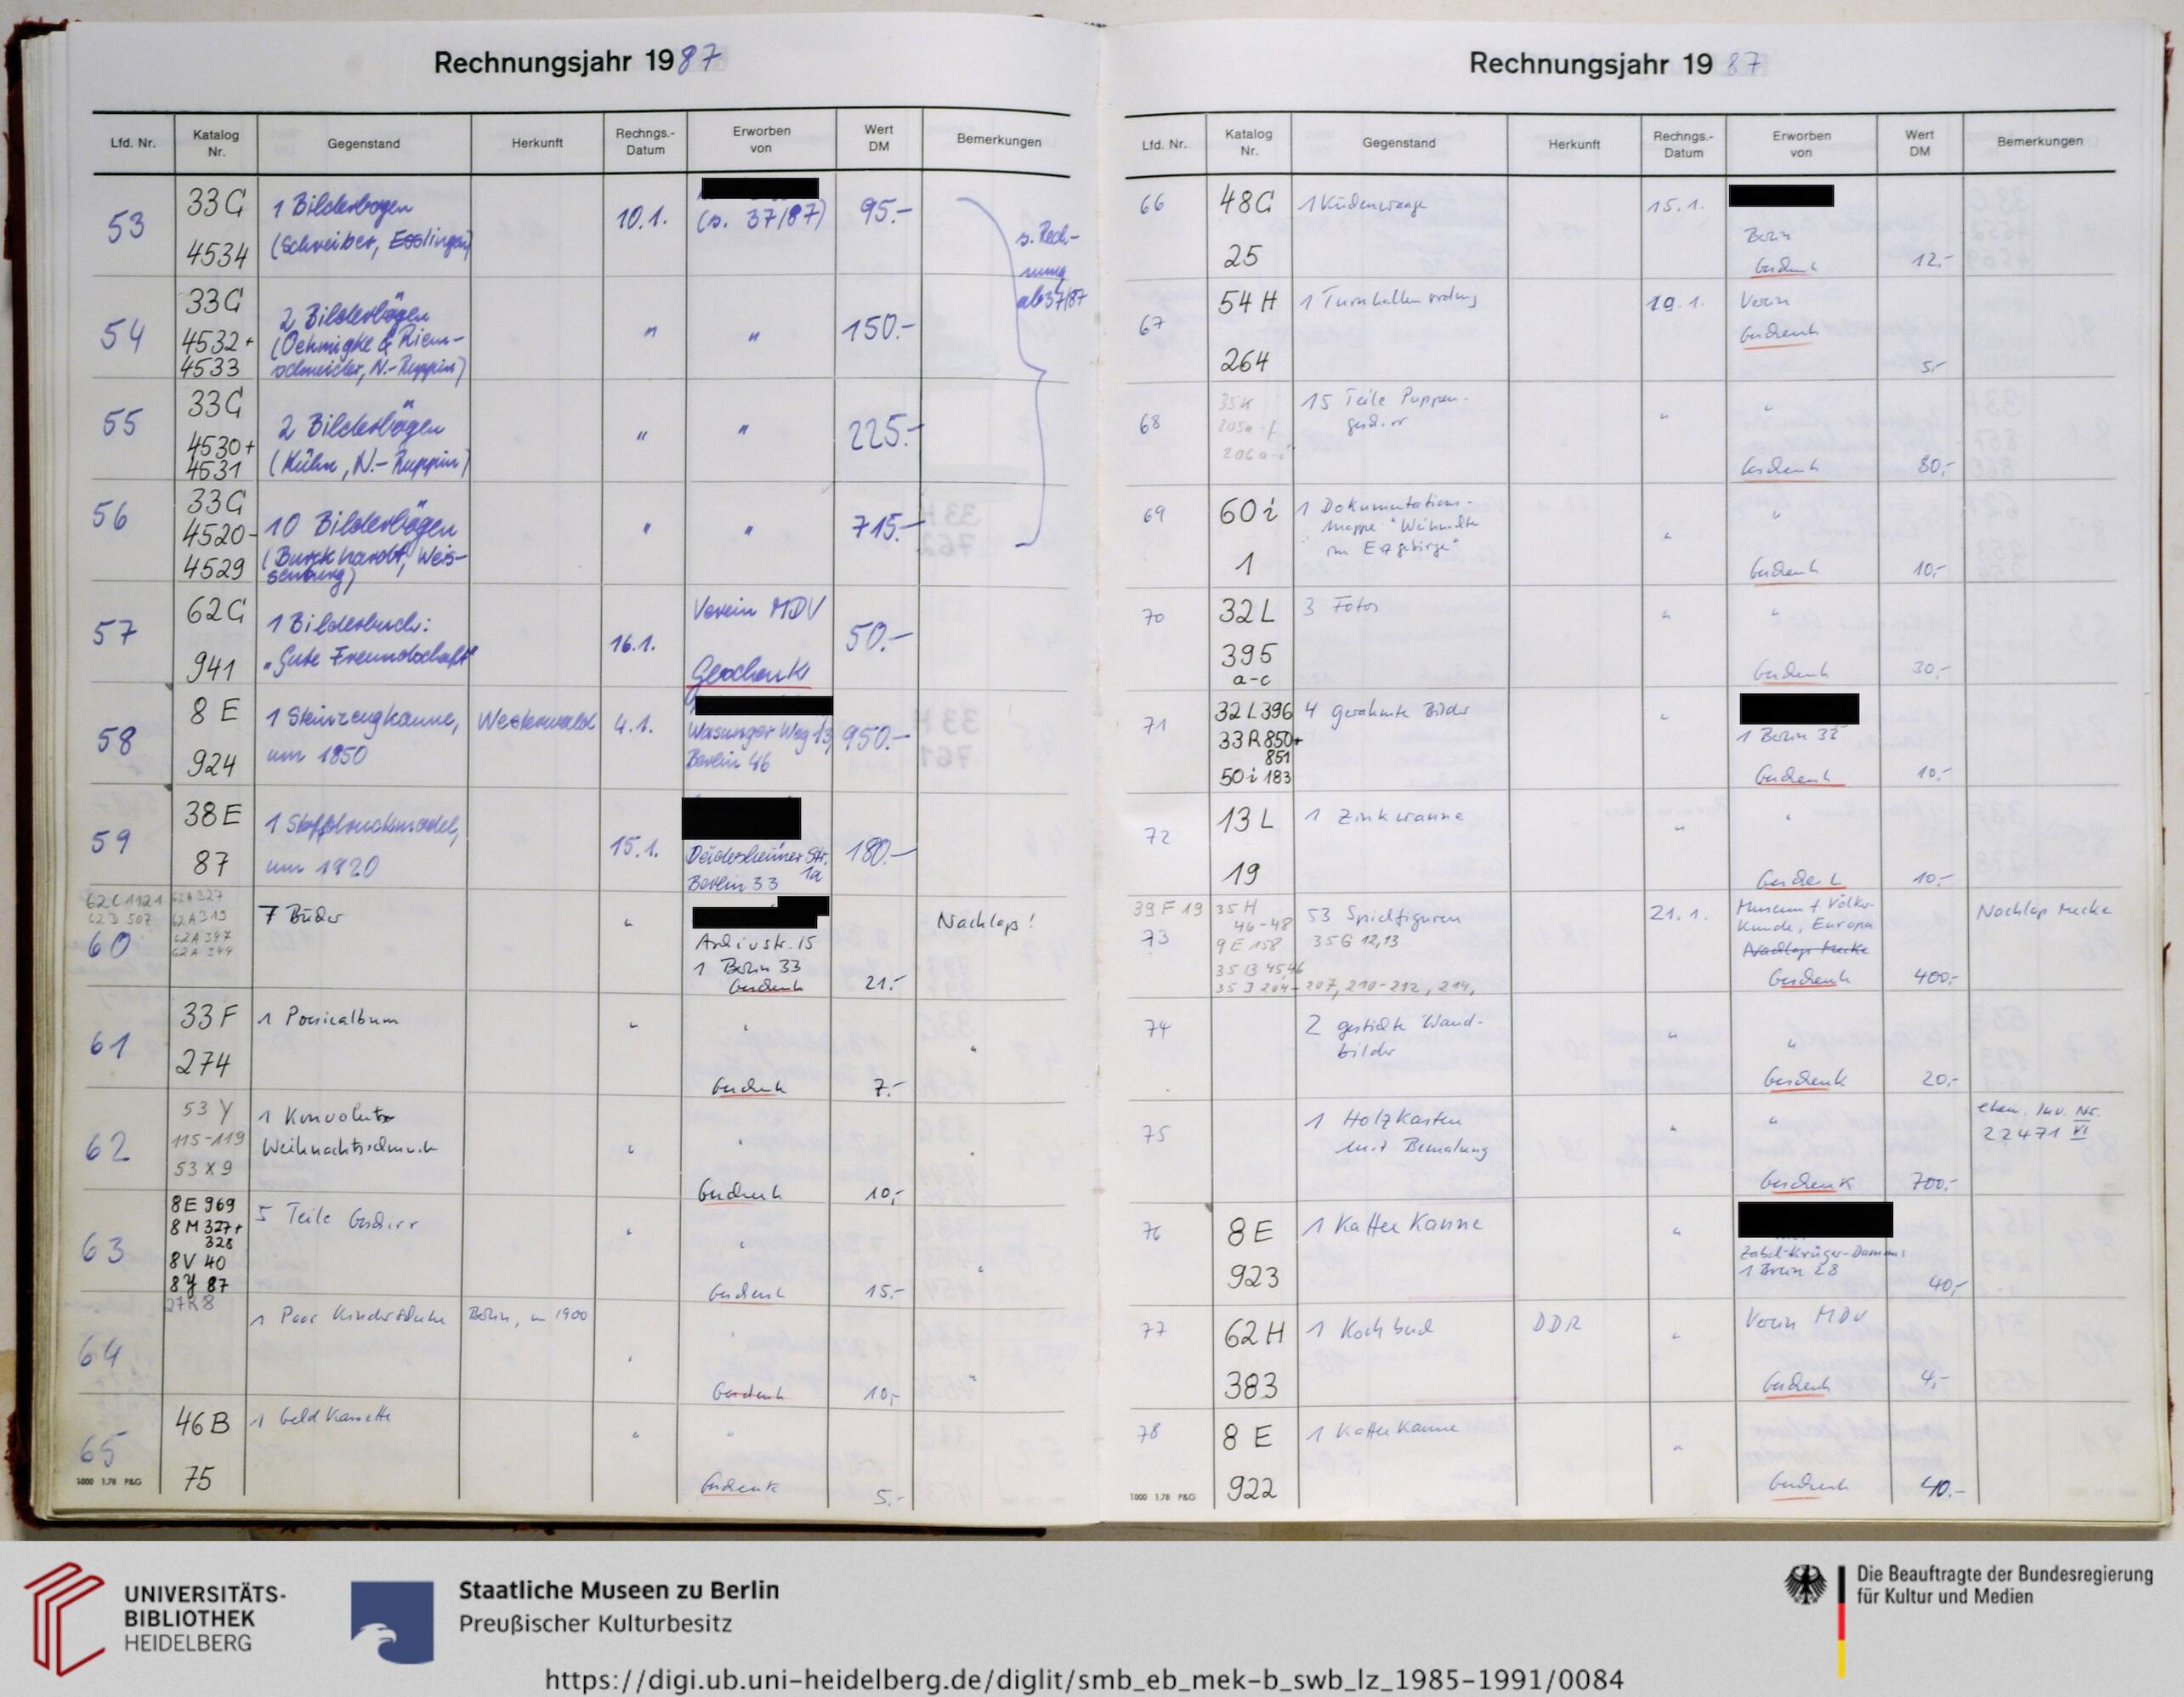 Rechnungsjahr 1987
Lfd. Nr.
Katalog
Nr.
Gegenstand
Herkunft
Rechngs.-
Datum
Erworben
von
Wert
DM
Bemerkungen
53
33 G
4534
1 Bilderbogen
(Schreiber, Esslingen)
10.1.
(s. 37/87)
95.-
s. Rech-
nung
ab 37/87
54
33 G
4532+
4533
2 Bilderbögen
(Oehmigke & Riem-
schneider, N.-Ruppin)
"
"
150.-
55
33 G
4530+
4531
2 Bilderbögen
(Kühn, N.-Ruppin)
"
"
225.-
56
33 G
4520-
4529
10 Bilderbögen
(Burckhardt, Weis-
senburg)
"
"
715.-
57
62 G
941
1 Bilderbuch:
"Gute Freundschaft"
16.1.
Verein MDV
Geschenk
50.-
58
8 E
924
1 Steinzeugkanne,
um 1850
Westerwald
4.1.
Wasunger Weg 13,
Berlin 46
950.-
59
38 E
87
1 Stoffdruckmodel,
um 1920
15.1.
Deidesheimer Str.
1a
Berlin 33
180.-
62 C 1121
62 D 507
60
62 A 327
62 A 319
62 A 347
62 A 344
7 Bücher
"
str. 15
1 Berlin 33
Geschenk
21.-
Nachlaß!
61
33 F
274
1 Poesiealbum
"
"
Geschenk
7.-
"
62
53 Y
115-119
53 X 9
1 Konvolut
Weihnachtsschmuck
"
"
Geschenk
10,-
"
63
8 E 969
8 M 327+
328
8 V 40
8 Y 87
5 Teile Geschirr
"
"
Geschenk
15.-
"
64
27 K 8
1 Paar Kinderschuhe
Berlin, um 1900
"
"
Geschenk
10,-
"
65
46 B
75
1 Geldkassette
"
"
Geschenk
5.-
1000 1.78 P&G
Rechnungsjahr 1987
Lfd. Nr.
Katalog
Nr.
Gegenstand
Herkunft
Rechngs.-
Datum
Erworben
von
Wert
DM
Bemerkungen
66
48 G
25
1 Küchenwaage
15.1.
Berlin
Geschenk
12.-
67
54 H
264
1 Turnhallenordnung
19.1.
Verein
Geschenk
5.-
68
35 K
205a-f
206a-i
15 Teile Puppen-
geschirr
"
"
Geschenk
80,-
69
60 i
1
1 Dokumentations-
mappe "Weihnachten
im Erzgebirge"
"
"
Geschenk
10,-
70
32 L
395
a-c
3 Fotos
"
"
Geschenk
30,-
71
32 L 396
33 R 850+
851
50 i 183
4 gerahmte Bilder
"
1 Berlin 33
Geschenk
10.-
72
13 L
19
1 Zinkwanne
"
"
Geschenk
10.-
39 F 19
73
35 H
46-48
9 E 158
35 B 45,46
35 J 204-207, 210-212, 214,
53 Spielfiguren
35 G 12,13
21.1.
Museum f. Völker-
kunde, Europa
Nachlaß Mecke
Geschenk
400.-
Nachlaß Mecke
74
2 gestickte Wand-
bilder
"
"
Geschenk
20,-
75
1 Holzkasten
mit Bemalung
"
"
Geschenk
700.-
ehem. Inv. Nr.
22471 VI
76
8 E
923
1 Kaffeekanne
"
Zabel-Krüger-Damm
1 Berlin 28
40,-
77
62 H
383
1 Kochbuch
DDR
"
Verein MDV
Geschenk
4,-
78
8 E
922
1 Kaffeekanne
"
Geschenk
40.-
1000 1.78 P&G
UNIVERSITÄTS-
BIBLIOTHEK
HEIDELBERG
Staatliche Museen zu Berlin
Preußischer Kulturbesitz
Die Beauftragte der Bundesregierung
für Kultur und Medien
https://digi.ub.uni-heidelberg.de/diglit/smb_eb_mek-b_swb_lz_1985-1991/0084